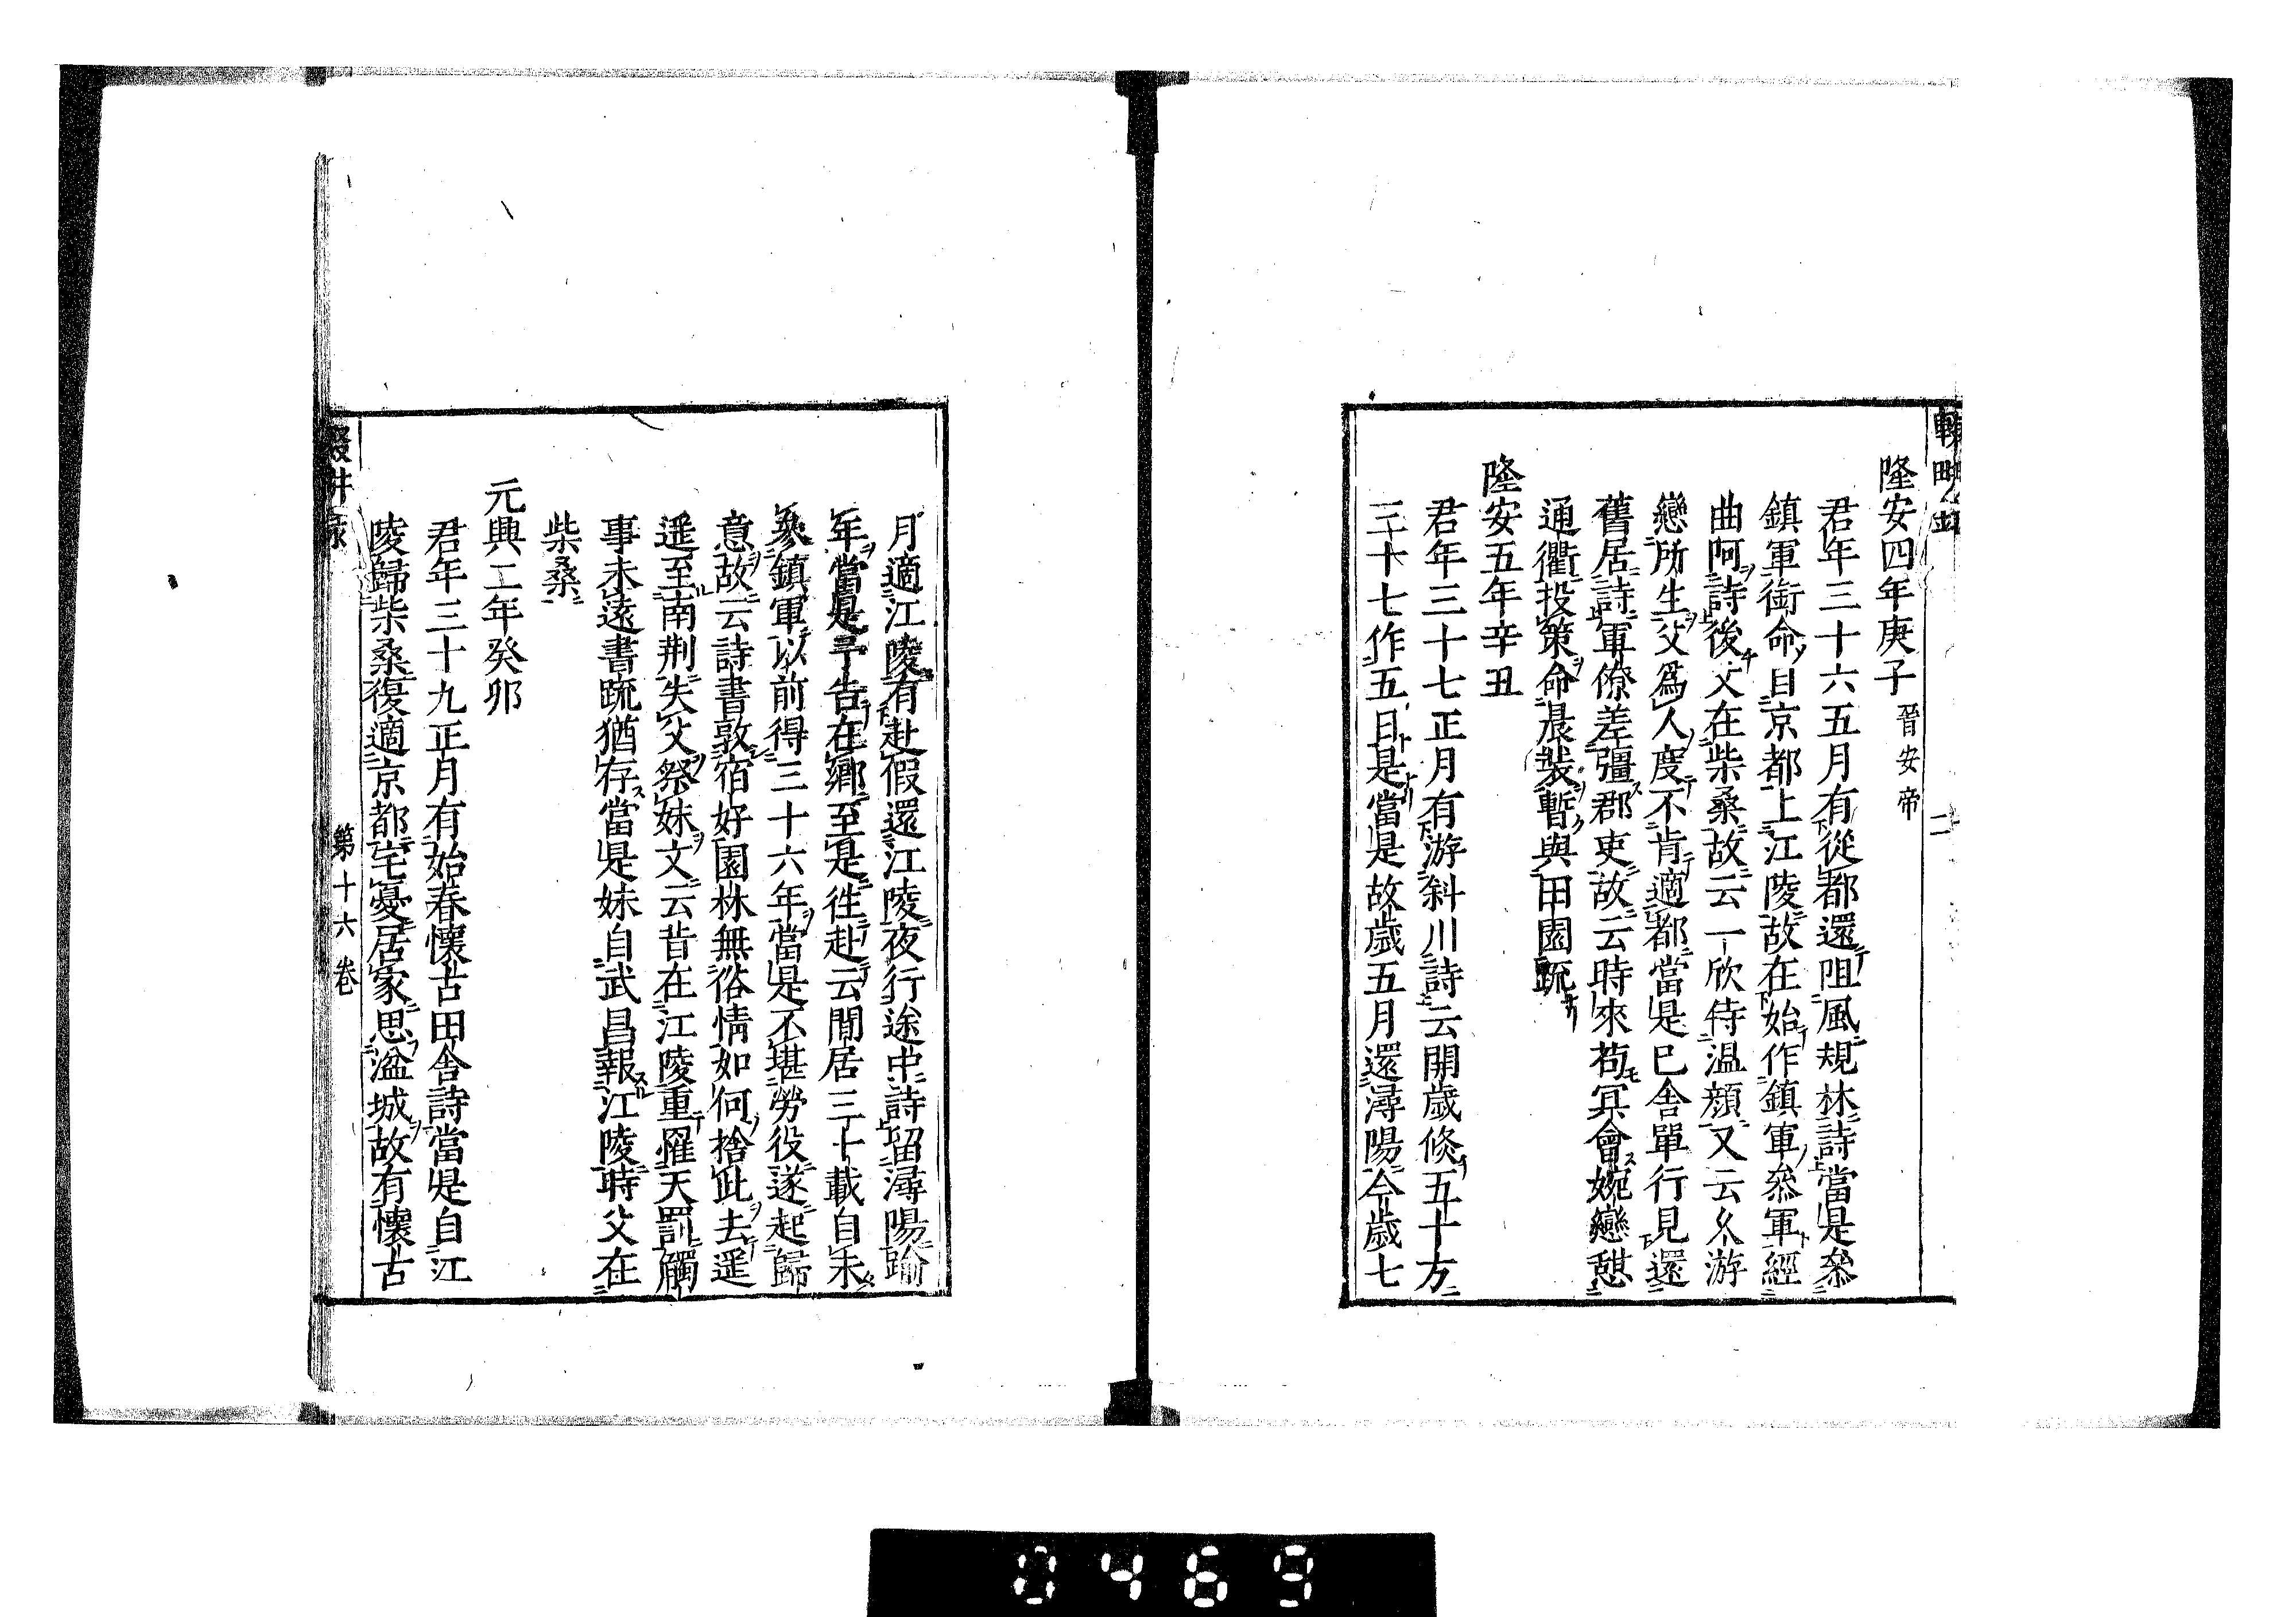 隆安四年庚子 晉安帝
君年三十六五月有從都還阻風規林詩當是叅
鎮軍銜命自京都上江陵故在始作鎮軍叅軍經
曲阿詩後父在柴桑故云一欣侍温顔又云久游
戀所生父爲人度不肯適都當是已舎單行見還
舊居詩軍僚差彊郡吏故云時來苟冥會婉孌憇
通衢投策命晨裝暫與田園䟽
隆安五年辛丑
君年三十七正月有游斜川詩云開歲倐五十方
三十七作五日是當是故歲五月還潯陽今歲七
月適江陵有赴假還江陵夜行途中詩留潯陽踰
年當是予告在鄉至是徃赴云閒居三十載自朱
叅鎮軍以前得三十六年當是不堪勞役遂起歸
意故云詩書敦宿好園林無俗情如何捨此去遥
遥至南荆失父祭妹文云昔在江陵重罹天罰觸
事未遠書䟽猶存當是妹自武昌報江陵時父在
柴桑
元興二年癸卯
君年三十九正月有始春懷古田舎詩當是自江
陵歸柴桑復適京都宅憂居家思湓城故有懷古
第十六卷